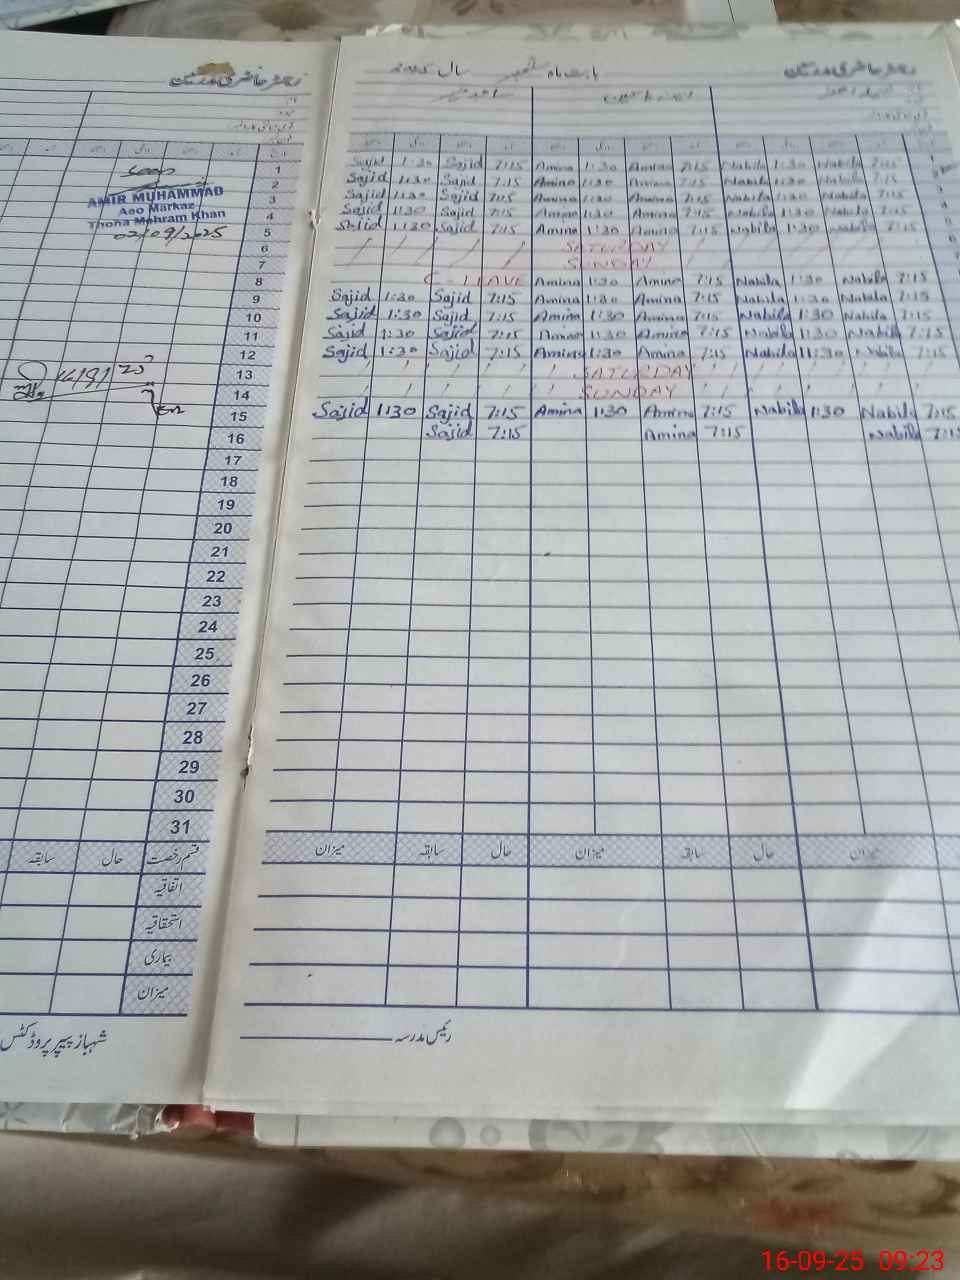 رجسٹر حاضری مدرسین بابت ماہ ستمبر سال 2025
Sajid 1:30 Sajid 7:15 Amina 1:30 Amina 7:15 Nabila 1:30 Nabila 7:15
Sajid 1:30 Sajid 7:15 Amina 1:30 Amina 7:15 Nabila 1:30 Nabila 7:15
Sajid 1:30 Sajid 7:15 Amina 1:30 Amina 7:15 Nabila 1:30 Nabila 7:15
Sajid 1:30 Sajid 7:15 Amina 1:30 Amina 7:15 Nabila 1:30 Nabila 7:15
Sajid 1:30 Sajid 7:15 Amina 1:30 Amina 7:15 Nabila 1:30 Nabila 7:15
SATURDAY
SUNDAY
C-LEAVE Amina 1:30 Amina 7:15 Nabila 1:30 Nabila 7:15
Sajid 1:30 Sajid 7:15 Amina 1:30 Amina 7:15 Nabila 1:30 Nabila 7:15
Sajid 1:30 Sajid 7:15 Amina 1:30 Amina 7:15 Nabila 1:30 Nabila 7:15
Sajid 1:30 Sajid 7:15 Amina 1:30 Amina 7:15 Nabila 1:30 Nabila 7:15
Sajid 1:30 Sajid 7:15 Amina 1:30 Amina 7:15 Nabila 11:30 Nabila 7:15
SATURDAY
SUNDAY
Sajid 1:30 Sajid 7:15 Amina 1:30 Amina 7:15 Nabila 1:30 Nabila 7:15
Sajid 7:15 Amina 7:15 Nabila 7:15
میزان حال سابقہ میزان حال سابقہ میزان
رئیس مدرسہ
رجسٹر حاضری مدرسین
1
2
AMIR MUHAMMAD
3
Aoo Markaz
4
Thona Mahram Khan
02/09/2025
5
6
7
8
9
10
11
12
13
14
15
16
17
18
19
20
21
22
23
24
25
26
27
28
29
30
31
قسم رخصت حال سابقہ
اتفاقیہ
استحقاقیہ
بیماری
میزان
شہباز پیپر پروڈکٹس
16-09-25 09:23